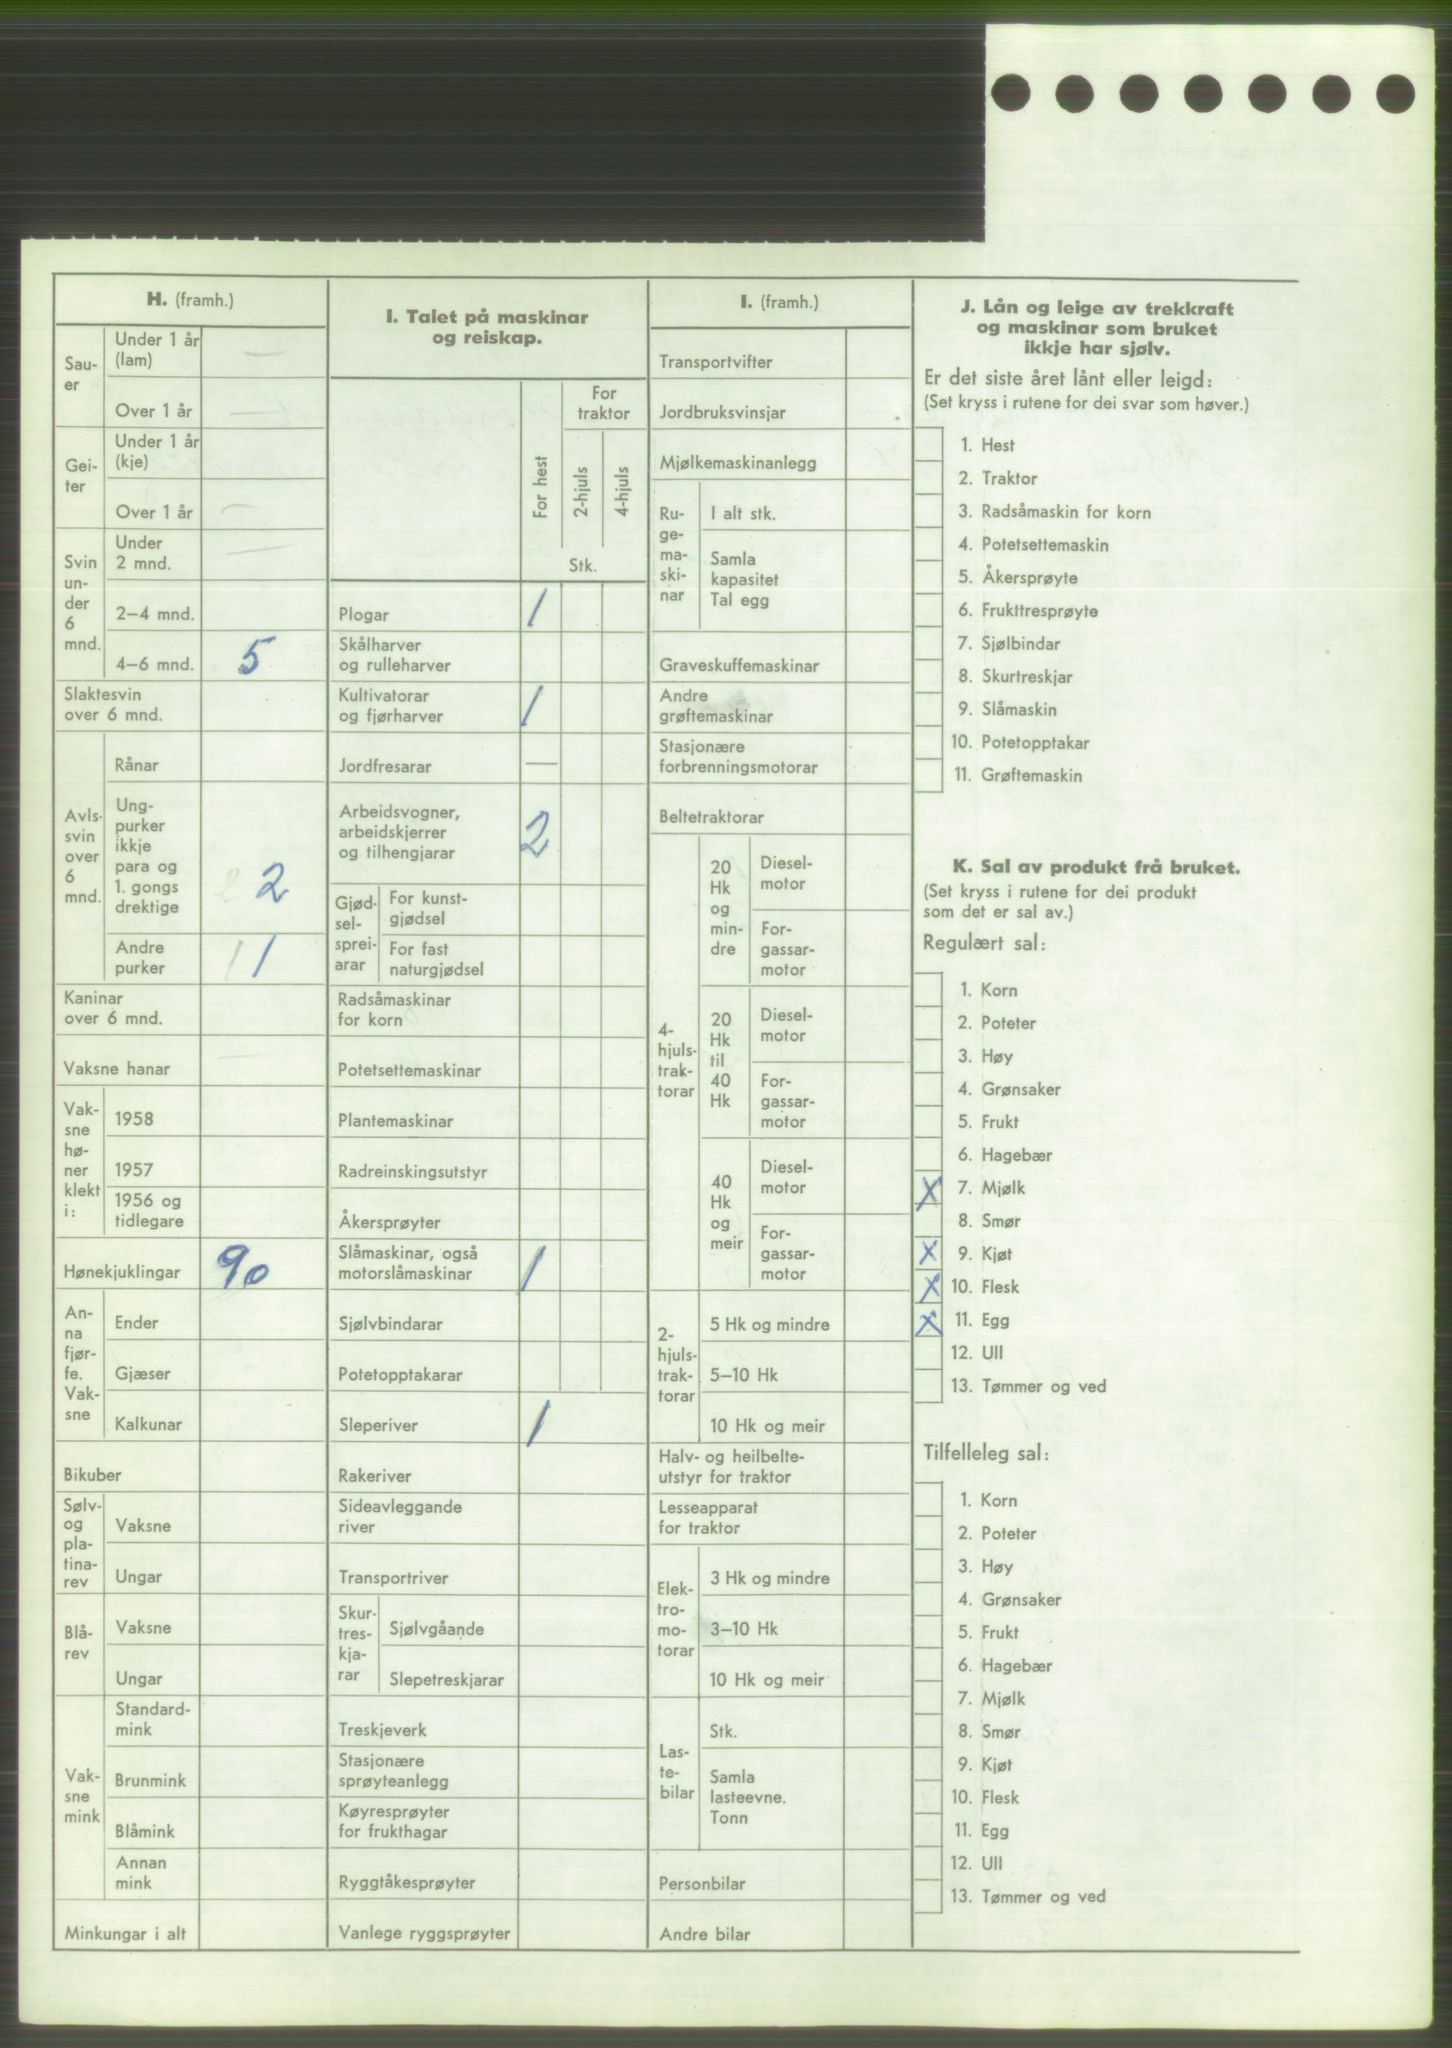 H. (framh.)
Sau-
er
Under 1 år
(lam)
—
Over 1 år
—
Gei-
ter
Under 1 år
(kje)
Over 1 år
—
Svin
un-
der
6
mnd.
Under
2 mnd.
—
2–4 mnd.
4–6 mnd.
5
Slaktesvin
over 6 mnd.
Avls-
svin
over
6
mnd.
Rånar
Ung-
purker
ikkje
para og
1. gongs
drektige
2 2
Andre
purker
1 1
Kaninar
over 6 mnd.
Vaksne hanar
Vak-
sne
hø-
ner
klekt
i:
1958
1957
1956 og
tidlegare
Hønekjuklingar
90
An-
na
fjør-
fe.
Vak-
sne
Ender
Gjæser
Kalkunar
Bikuber
Sølv-
og
pla-
tina-
rev
Vaksne
Ungar
Blå-
rev
Vaksne
Ungar
Vak-
sne
mink
Standard-
mink
Brunmink
Blåmink
Annan
mink
Minkungar i alt
I. Talet på maskinar
og reiskap.
For hest
For
traktor
2-hjuls
4-hjuls
Stk.
Plogar
1
Skålharver
og rulleharver
Kultivatorar
og fjørharver
1
Jordfresarar
—
Arbeidsvogner,
arbeidskjerrer
og tilhengjarar
2
Gjød-
sel-
sprei-
arar
For kunst-
gjødsel
For fast
naturgjødsel
Radsåmaskinar
for korn
Potetsettemaskinar
Plantemaskinar
Radreinskingsutstyr
Åkersprøyter
Slåmaskinar, også
motorslåmaskinar
1
Sjølvbindarar
Potetopptakarar
Sleperiver
1
Rakeriver
Sideavleggande
river
Transportriver
Skur-
tres-
kja-
rar
Sjølvgåande
Slepetreskjarar
Treskjeverk
Stasjonære
sprøyteanlegg
Køyresprøyter
for frukthagar
Ryggtåkesprøyter
Vanlege ryggsprøyter
I. (framh.)
Transportvifter
Jordbruksvinsjar
Mjølkemaskinanlegg
Ru-
ge-
ma-
ski-
nar
I alt stk.
Samla
kapasitet
Tal egg
Graveskuffemaskinar
Andre
grøftemaskinar
Stasjonære
forbrenningsmotorar
Beltetraktorar
4-
hjuls-
trak-
torar
20
Hk
og
min-
dre
Diesel-
motor
For-
gassar-
motor
20
Hk
til
40
Hk
Diesel-
motor
For-
gassar-
motor
40
Hk
og
meir
Diesel-
motor
For-
gassar-
motor
2-
hjuls-
trak-
torar
5 Hk og mindre
5–10 Hk
10 Hk og meir
Halv- og heilbelte-
utstyr for traktor
Lesseapparat
for traktor
Elek-
tro-
mo-
torar
3 Hk og mindre
3–10 Hk
10 Hk og meir
Las-
te-
bilar
Stk.
Samla
lasteevne.
Tonn
Personbilar
Andre bilar
J. Lån og leige av trekkraft
og maskinar som bruket
ikkje har sjølv.
Er det siste året lånt eller leigd:
(Set kryss i rutene for dei svar som høver.)
1. Hest
2. Traktor
3. Radsåmaskin for korn
4. Potetsettemaskin
5. Åkersprøyte
6. Frukttresprøyte
7. Sjølbindar
8. Skurtreskjar
9. Slåmaskin
10. Potetopptakar
11. Grøftemaskin
K. Sal av produkt frå bruket.
(Set kryss i rutene for dei produkt
som det er sal av.)
Regulært sal:
1. Korn
2. Poteter
3. Høy
4. Grønsaker
5. Frukt
6. Hagebær
X 7. Mjølk
8. Smør
X 9. Kjøt
X 10. Flesk
X 11. Egg
12. Ull
13. Tømmer og ved
Tilfelleleg sal:
1. Korn
2. Poteter
3. Høy
4. Grønsaker
5. Frukt
6. Hagebær
7. Mjølk
8. Smør
9. Kjøt
10. Flesk
11. Egg
12. Ull
13. Tømmer og ved